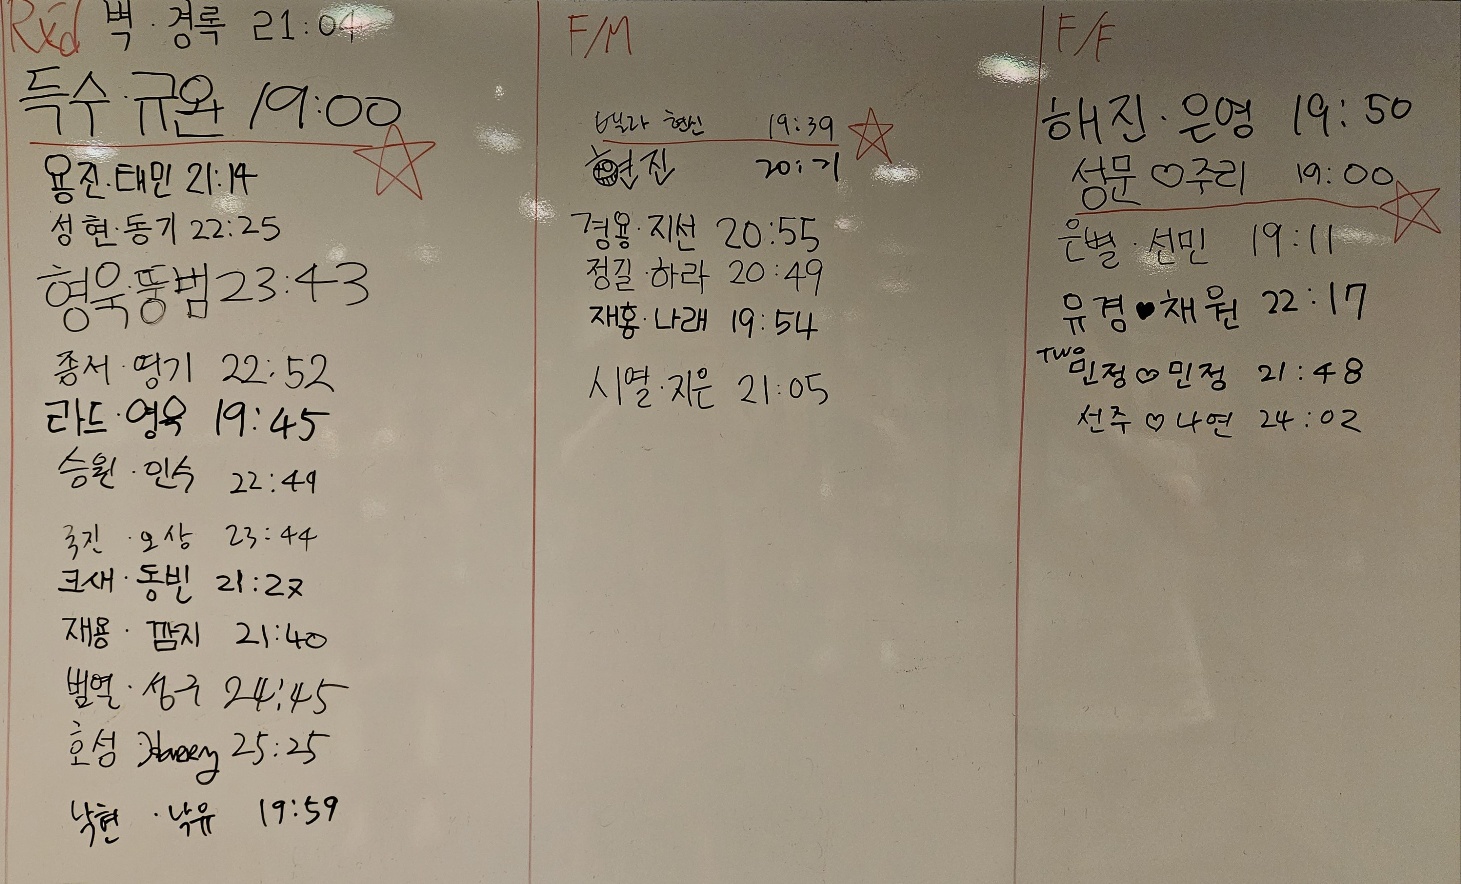 Rxd 벽·경록 21:04
득수·규완 19:00
용진·태민 21:14
성현·동기 22:25
형욱·뚱범 23:43
종서·띵기 22:52
라드·영욱 19:45
승원·인수 22:49
국진·오상 23:44
크새·동빈 21:27
재용·깜지 21:40
범열·성구 24:45
호성 25:25
낙현·낙유 19:59
F/M
빌라 현신 19:39
현진
경용·지선 20:55
정길·하라 20:49
재홍·나래 19:54
시열·지은 21:05
F/F
해진·은영 19:50
성문♡주리 19:00
은별·선민 19:11
유경♥채원 22:17
TWO 민정♡민정 21:48
선주♡나연 24:02